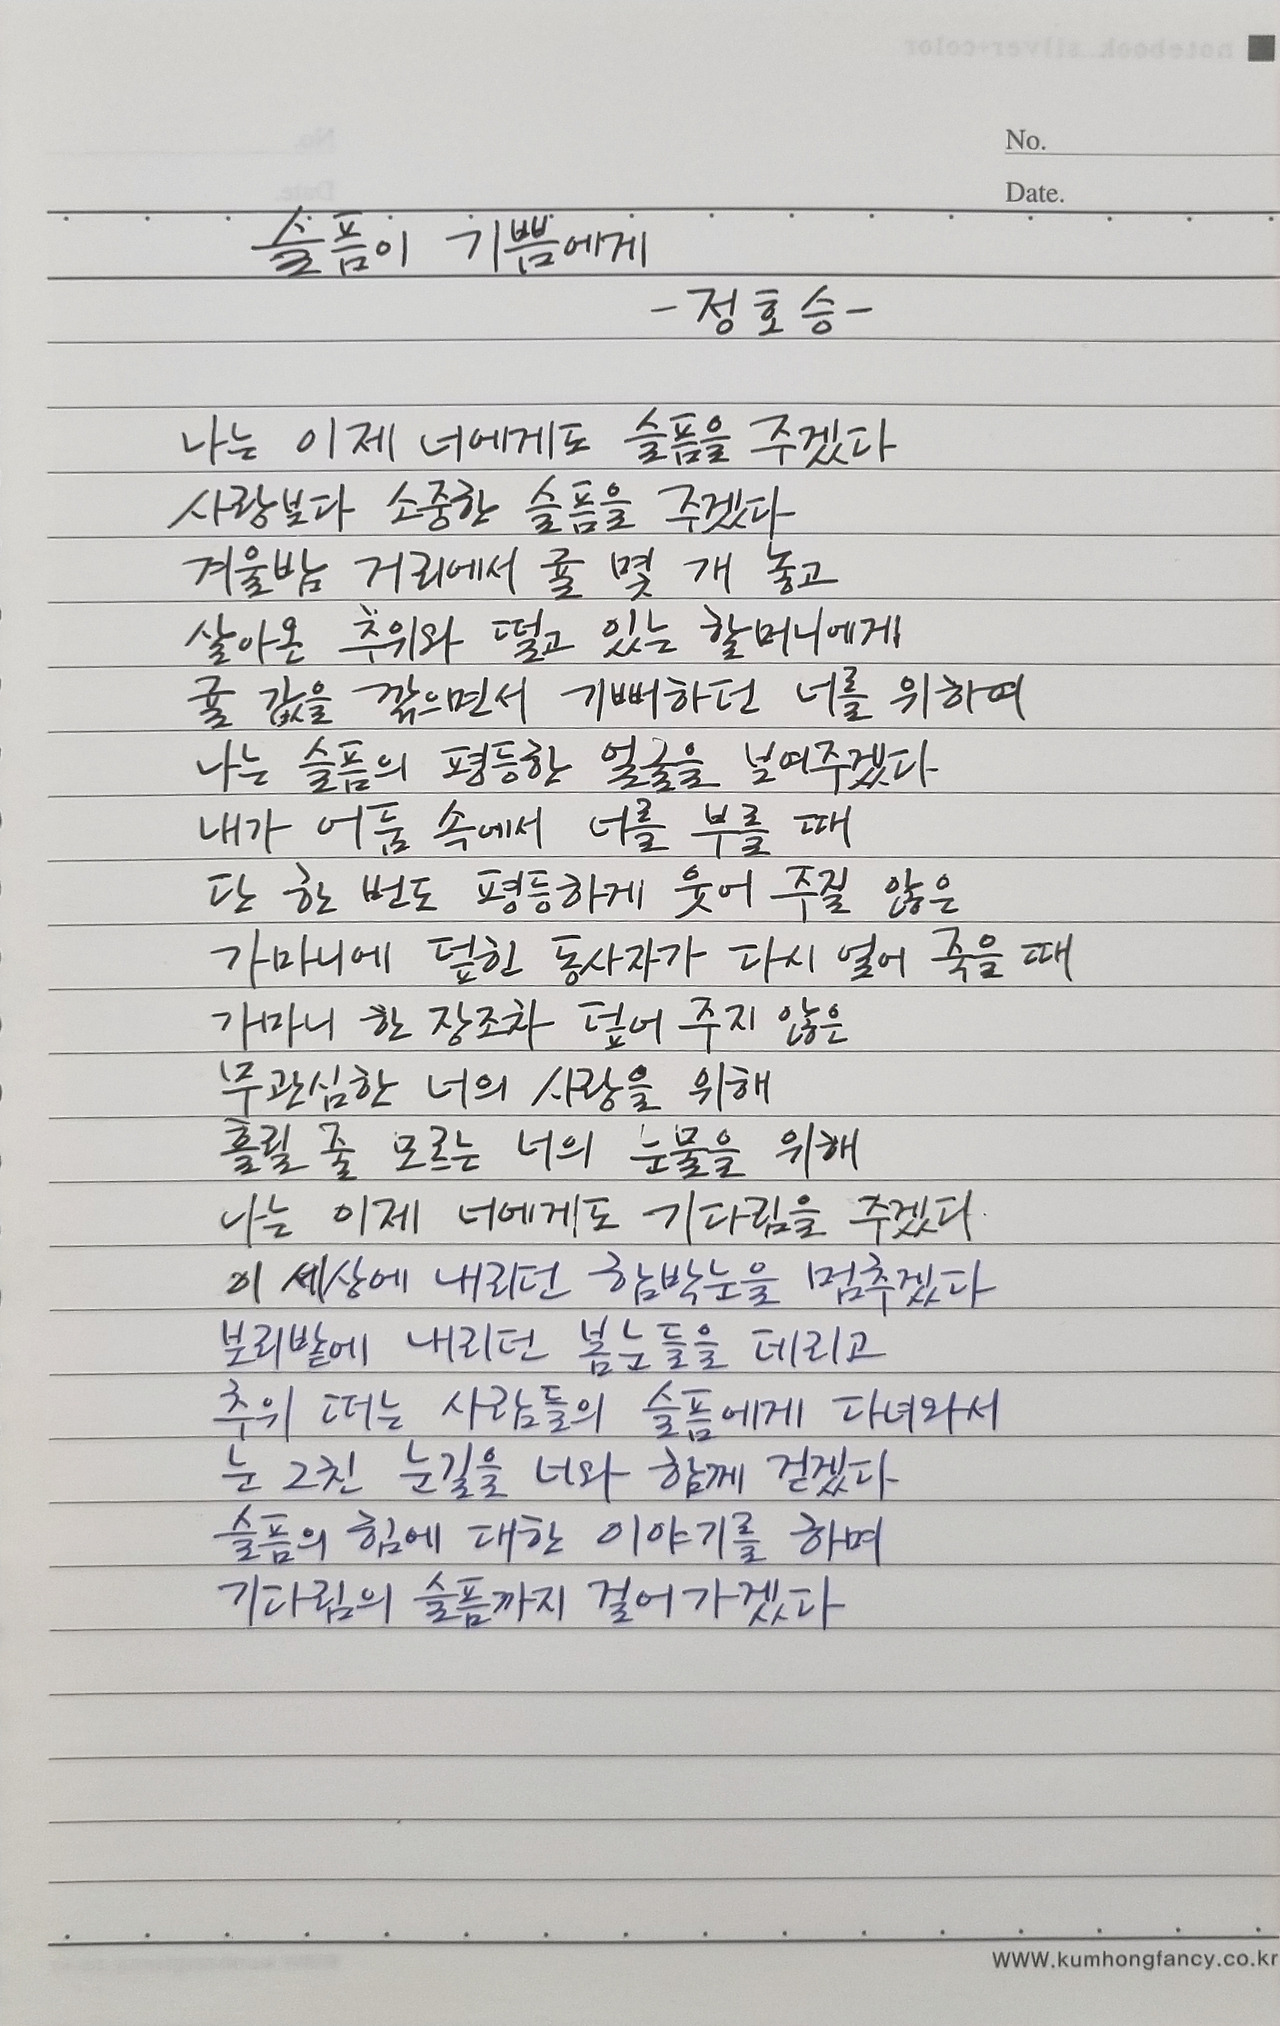 notebook silver+color
No.
Date.
슬픔이 기쁨에게
-정호승-
나는 이제 너에게도 슬픔을 주겠다
사랑보다 소중한 슬픔을 주겠다
겨울밤 거리에서 귤 몇 개 놓고
살아온 추위와 떨고 있는 할머니에게
귤 값을 깎으면서 기뻐하던 너를 위하여
나는 슬픔의 평등한 얼굴을 보여주겠다
내가 어둠 속에서 너를 부를 때
단 한 번도 평등하게 웃어 주질 않은
가마니에 덮힌 동사자가 다시 얼어 죽을 때
가마니 한 장조차 덮어 주지 않은
무관심한 너의 사랑을 위해
흘릴 줄 모르는 너의 눈물을 위해
나는 이제 너에게도 기다림을 주겠다.
이 세상에 내리던 함박눈을 멈추겠다
보리밭에 내리던 봄눈들을 데리고
추위 떠는 사람들의 슬픔에게 다녀와서
눈 그친 눈길을 너와 함께 걷겠다
슬픔의 힘에 대한 이야기를 하며
기다림의 슬픔까지 걸어가겠다
WWW.kumhongfancy.co.kr